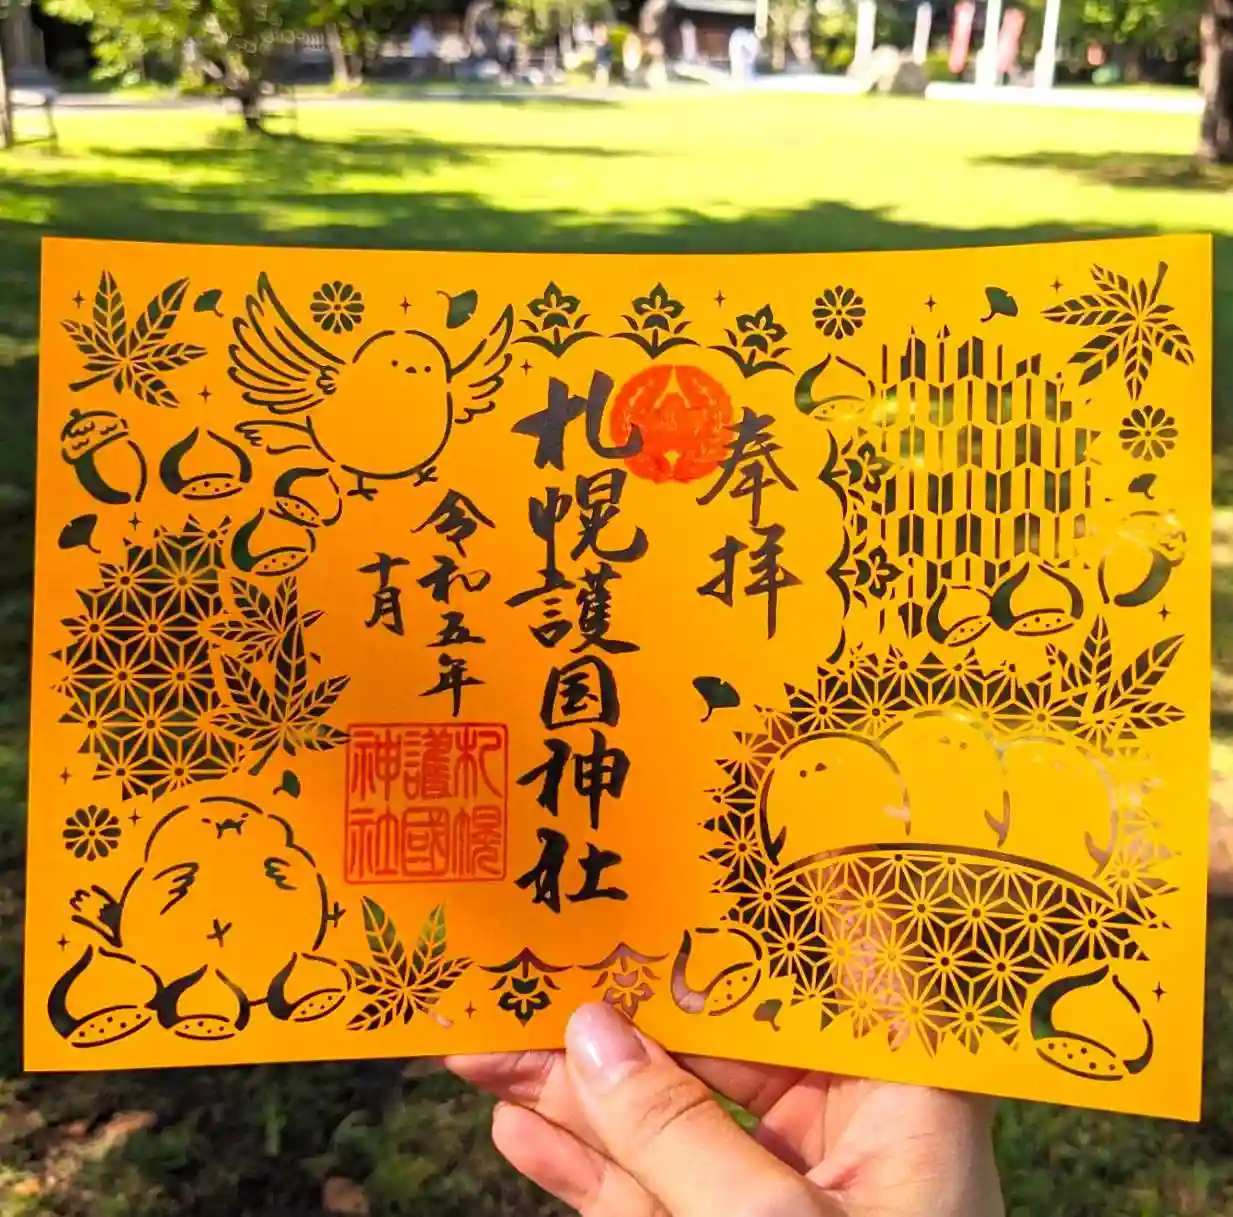 奉拝
札幌護国神社
令和五年
十月
札幌
護國
神社